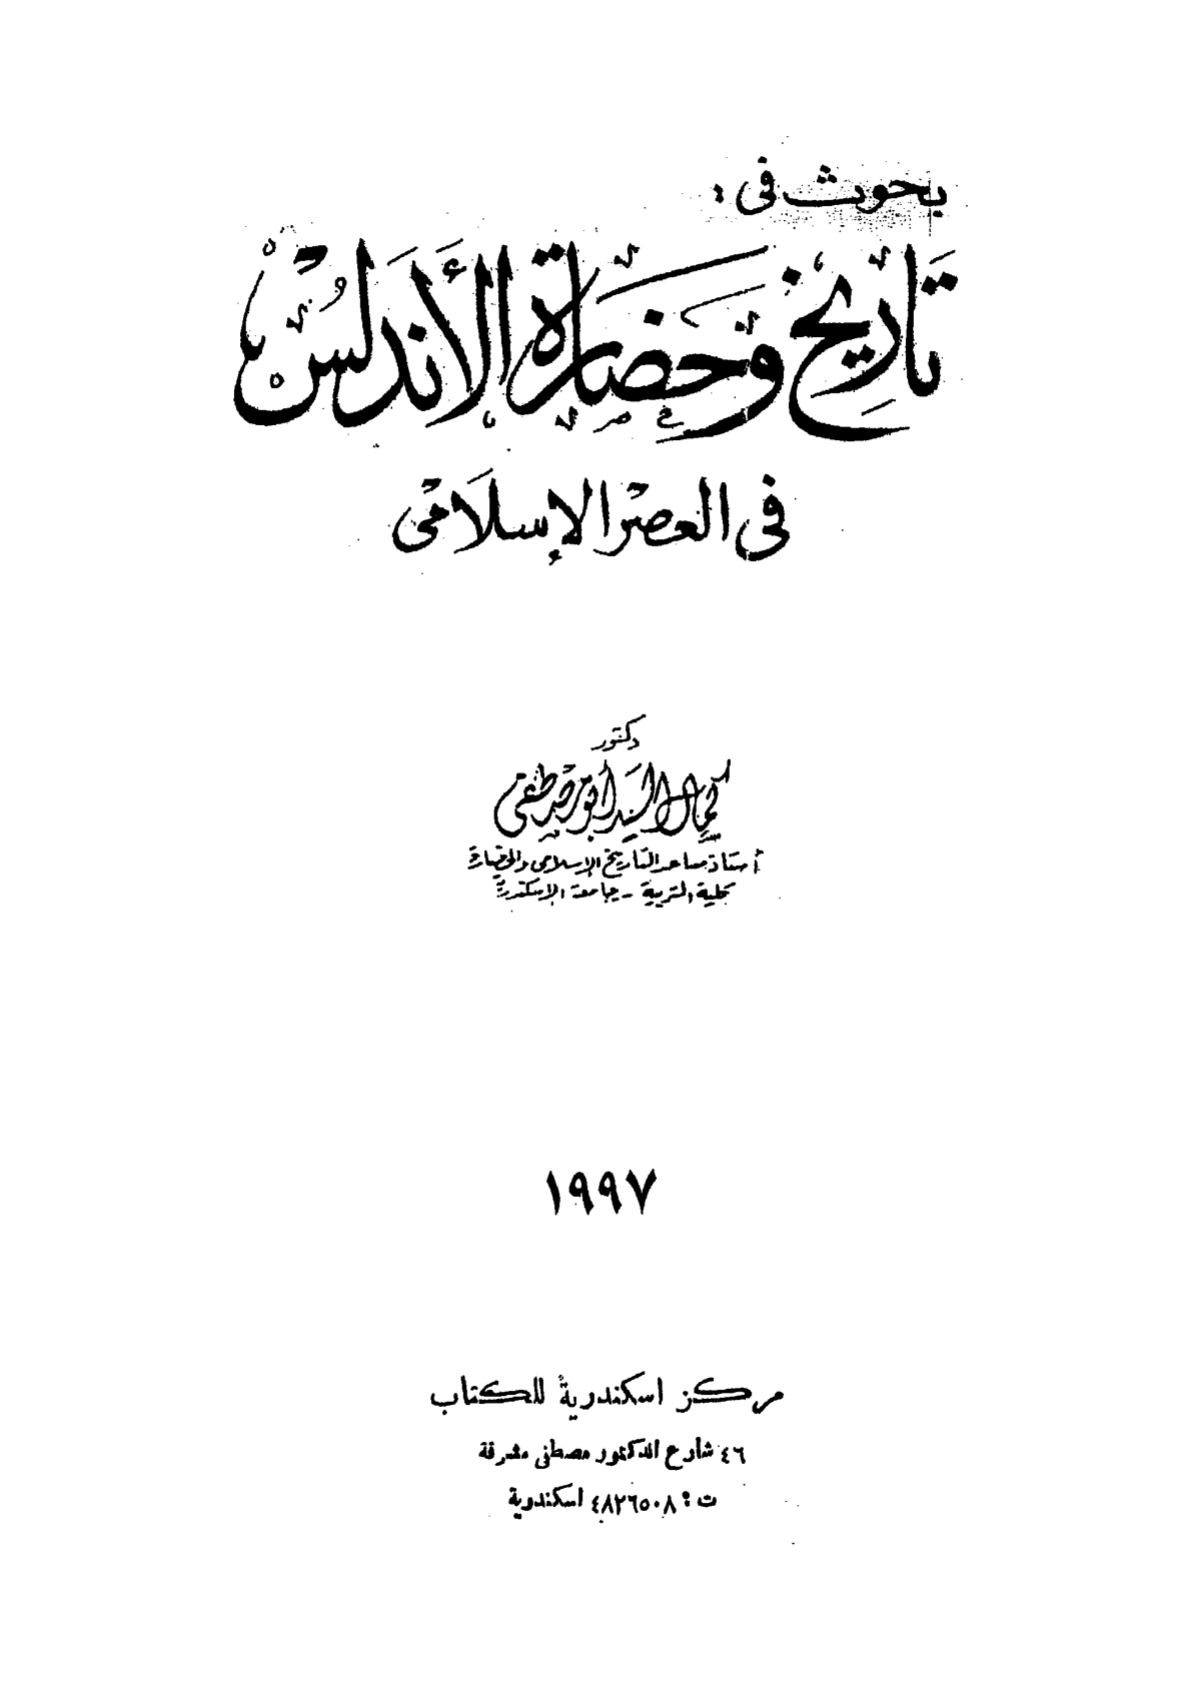 بحوث فى :
تاريخ وحضارة الأندلس
فى العصر الإسلامى
دكتور
كمال السيد أبو مصطفى
أستاذ مساعد التاريخ الإسلامى والحضارة
كلية التربية - جامعة الإسكندرية
١٩٩٧
مركز اسكندرية للكتاب
٤٦ شارع الدكتور مصطفى مشرفة
ت : ٤٨٢٦٥٠٨ اسكندرية